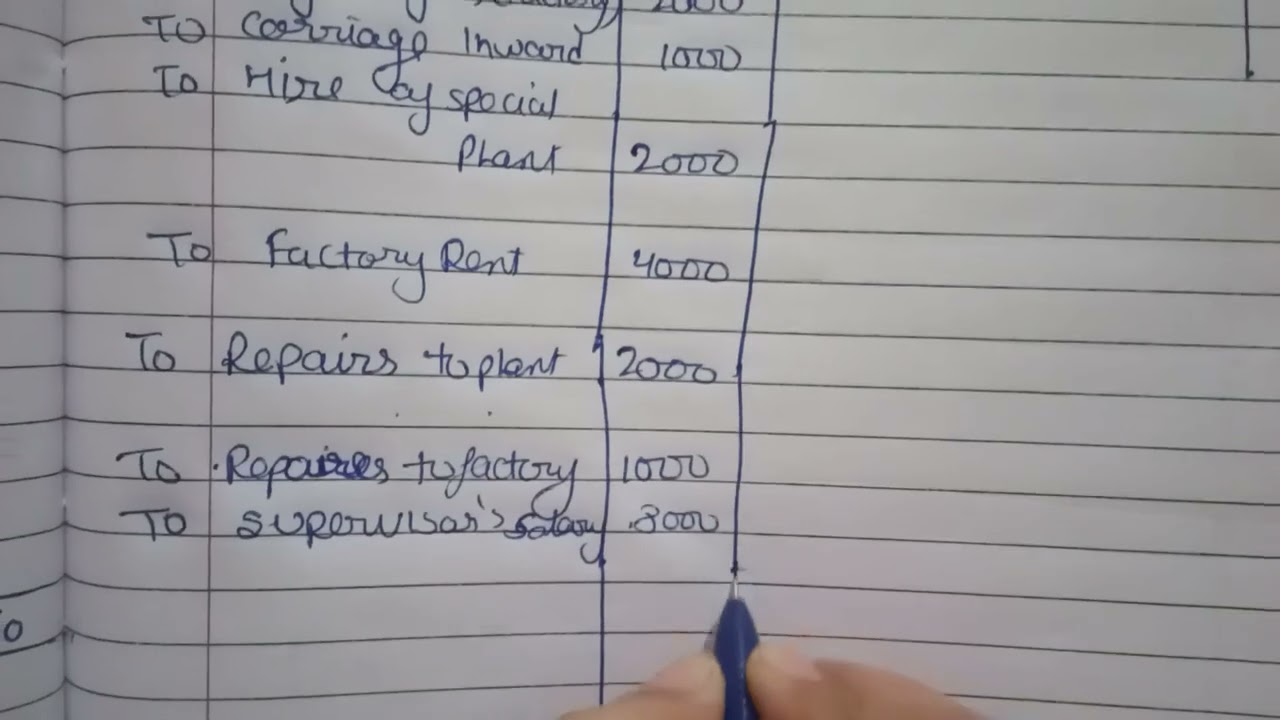 2000
To Carriage Inward 1000
To Hire by special
Plant 2000
To Factory Rent 4000
To Repairs to plant 2000
To Repaires to factory 1000
To Supervisar's salary 3000